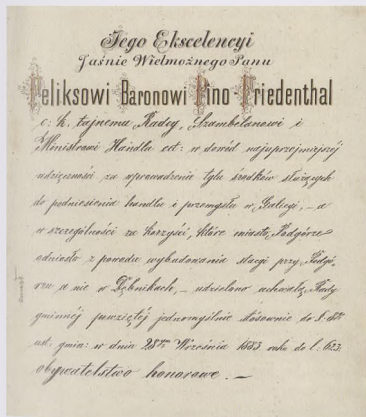 Jego Ekscelencyi
Jaśnie Wielmożnego Panu
Feliksowi Baronowi Pino Friedenthal
c: k. tajnemu Radcy, Szambelanowi i
Ministrowi Handlu ect: w dowód najuprzejmiejszej
wdzięczności za wprowadzenia tylu środków służących
do podniesienia handlu i przemysłu w Galicyi, – a
w szczególności za korzyści, które miasto Podgórze
odniosło z powodu wybudowania stacyi przy Podgó,
rzu a nie w Dębnikach, – udzielono uchwałą Rady
gminnéj powziętéj jednomyślnie stósownie do §.
ust: gmin: w dniu 28 Września 1883 roku do l: 623.
obywatelstwo honorowe. —